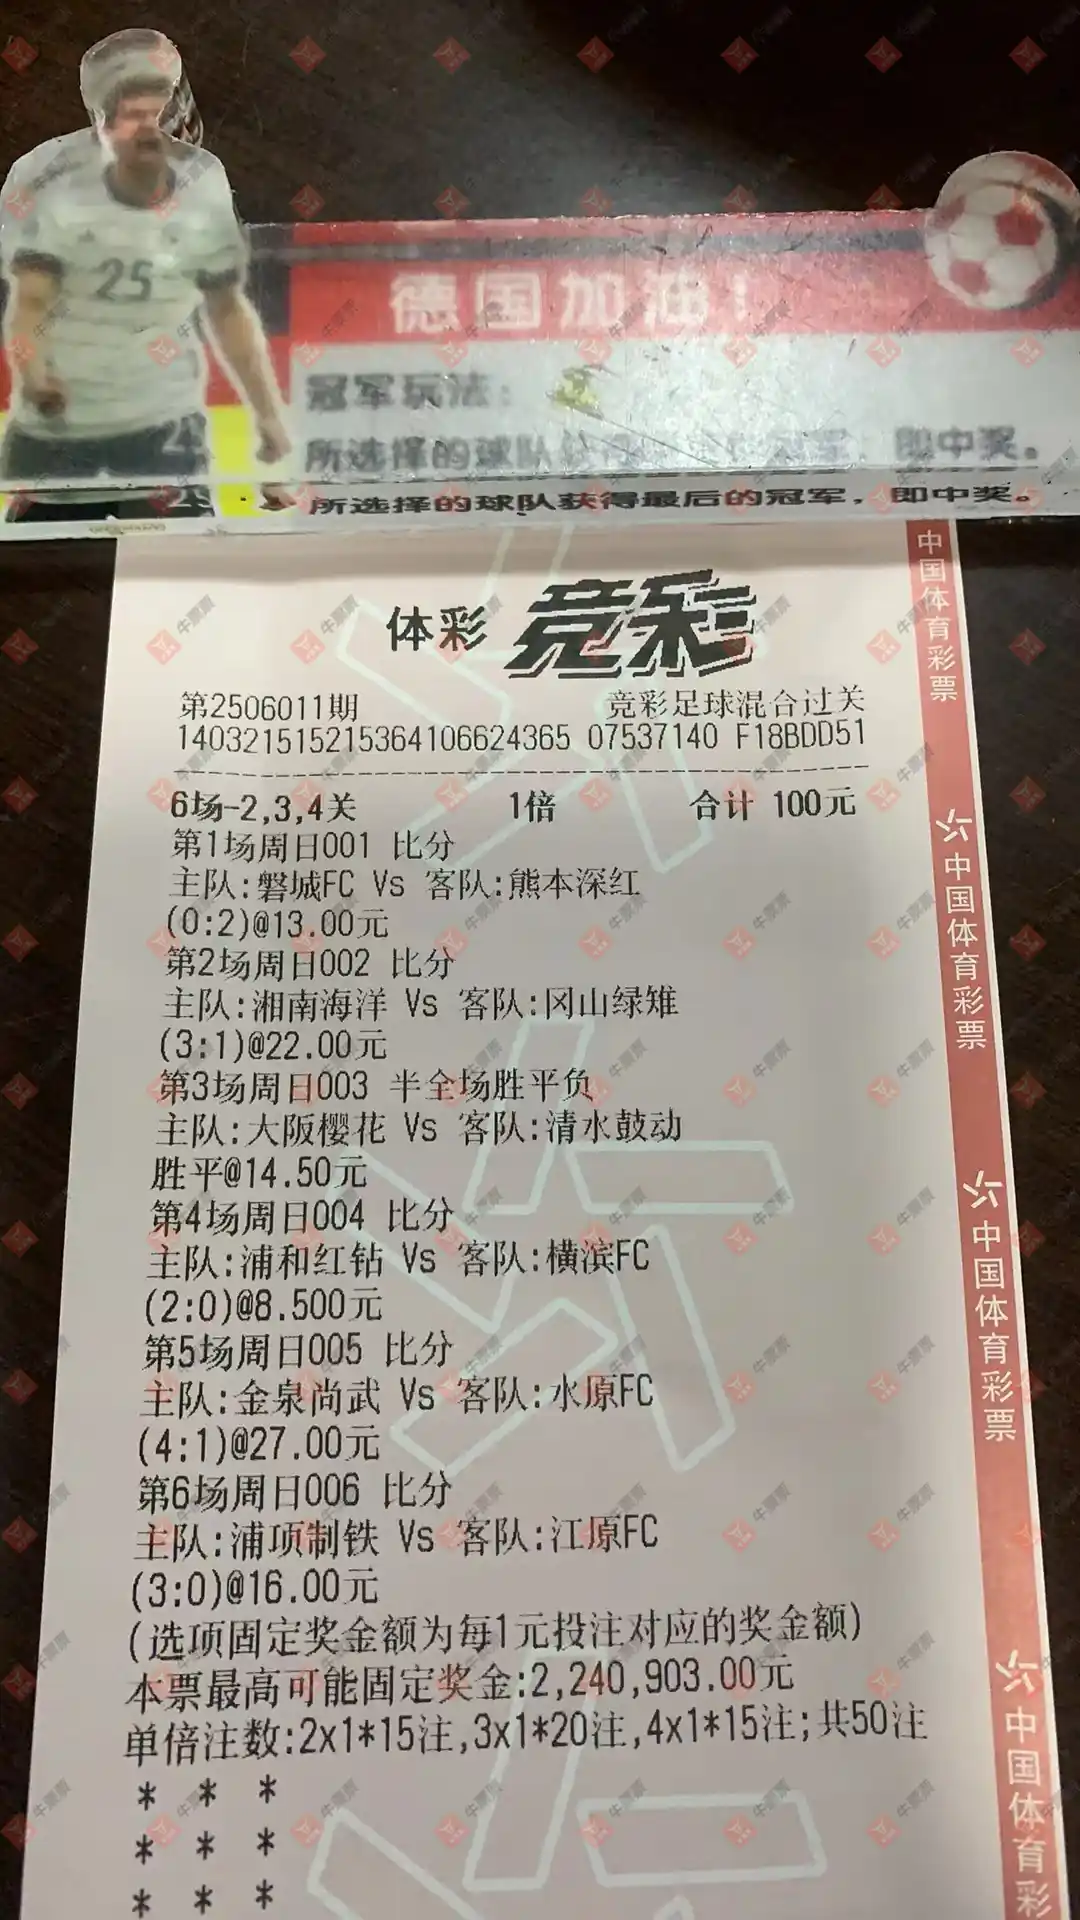 25
德国加油！
冠军玩法：
所选择的球队获得最后的冠军，即中奖。
所选择的球队获得最后的冠军，即中奖。
体彩 竞彩
第2506011期 竞彩足球混合过关
140321515215364106624365 07537140 F18BDD51
6场-2,3,4关 1倍 合计 100元
第1场周日001 比分
主队:磐城FC Vs 客队:熊本深红
(0:2)@13.00元
第2场周日002 比分
主队:湘南海洋 Vs 客队:冈山绿雉
(3:1)@22.00元
第3场周日003 半全场胜平负
主队:大阪樱花 Vs 客队:清水鼓动
胜平@14.50元
第4场周日004 比分
主队:浦和红钻 Vs 客队:横滨FC
(2:0)@8.500元
第5场周日005 比分
主队:金泉尚武 Vs 客队:水原FC
(4:1)@27.00元
第6场周日006 比分
主队:浦项制铁 Vs 客队:江原FC
(3:0)@16.00元
(选项固定奖金额为每1元投注对应的奖金额)
本票最高可能固定奖金:2,240,903.00元
单倍注数:2x1*15注,3x1*20注,4x1*15注;共50注
* * *
* * *
* * *
中国体育彩票
中国体育彩票
中国体育彩票
中国体育彩
牛票票